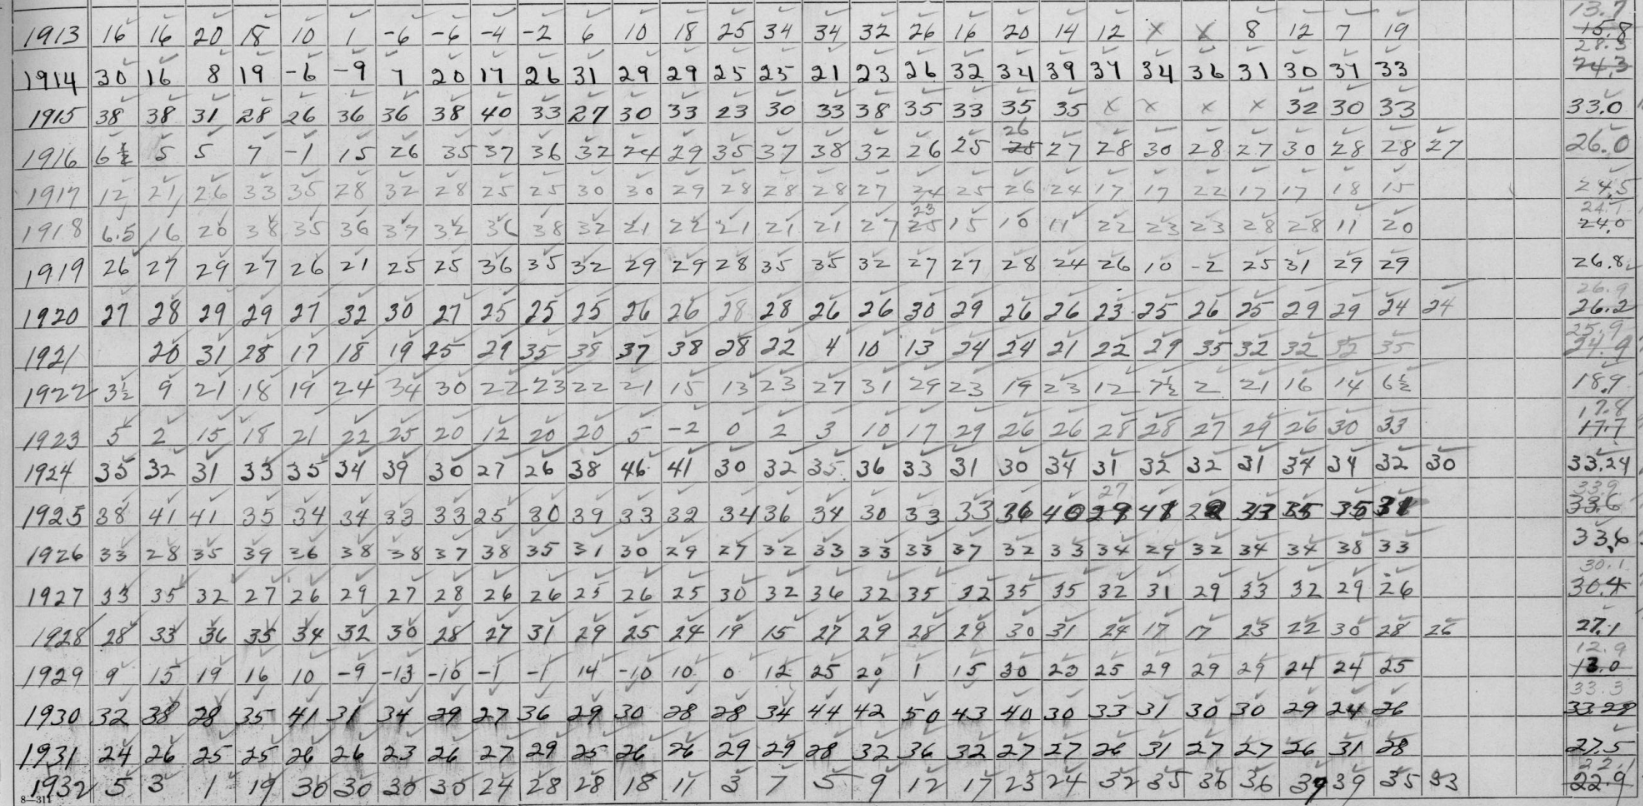 13.7
1913 16 16 20 18 10 1 -6 -6 -4 -2 6 10 18 25 34 34 32 26 16 20 14 12 x x 8 12 7 19 15.8
28.3
1914 30 16 8 19 -6 -9 7 20 17 26 31 29 29 25 25 21 23 26 32 34 39 37 34 36 31 30 37 33 24.3
1915 38 38 31 28 26 36 36 38 40 33 27 30 33 23 30 33 38 35 33 35 35 x x x x 32 30 33 33.0
26
1916 6½ 5 5 7 -1 15 26 35 37 36 32 24 29 35 37 38 32 26 25 25 27 28 30 28 27 30 28 28 27 26.0
1917 12 21 26 33 35 28 32 28 25 25 30 30 29 28 28 28 27 24 25 26 24 17 17 22 17 17 18 15 24.5
23 24.1
1918 6.5 16 20 38 35 36 37 32 36 38 32 21 22 21 21 21 27 25 15 10 11 22 23 23 28 28 11 20 24.0
1919 26 27 29 27 26 21 25 25 36 35 32 29 29 28 35 35 32 27 27 28 24 26 10 -2 25 31 29 29 26.8
26.9
1920 27 28 29 29 27 32 30 27 25 25 25 26 26 28 28 26 26 30 29 26 26 23 25 26 25 29 29 24 24 26.2
25.9
1921 20 31 28 17 18 19 25 29 35 38 37 38 28 22 4 10 13 24 24 21 22 29 35 32 32 32 35 24.9
1922 3½ 9 21 18 19 24 34 30 22 23 22 21 15 13 23 27 31 29 23 19 23 12 7½ 2 21 16 14 6½ 18.9
17.8
1923 5 2 15 18 21 22 25 20 12 20 20 5 -2 0 2 3 10 17 29 26 26 28 28 27 29 26 30 33 17.7
1924 35 32 31 33 35 34 39 30 27 26 38 46 41 30 32 35 36 33 31 30 34 31 32 32 31 34 34 32 30 33.24
27 33.9
1925 38 41 41 35 34 34 33 33 25 30 39 33 32 34 36 34 30 33 33 36 40 29 41 33 35 35 31 33.6
1926 33 28 35 39 36 38 38 37 38 35 31 30 29 27 32 33 33 33 37 32 33 34 29 32 34 34 38 33 33.6
30.1
1927 33 35 32 27 26 29 27 28 26 26 25 26 25 30 32 36 32 35 32 35 35 32 31 29 33 32 29 26 30.4
1928 28 33 36 35 34 32 30 28 27 31 29 25 24 19 15 27 29 28 29 30 31 24 17 17 23 22 30 28 26 27.1
12.9
1929 9 15 19 16 10 -9 -13 -10 -1 -1 14 -10 10 0 12 25 20 1 15 30 23 25 29 29 29 24 24 25 13.0
33.3
1930 32 38 28 35 41 31 34 29 27 36 29 30 28 28 34 44 42 50 43 40 30 33 31 30 30 29 24 26 33.29
1931 24 26 25 25 26 26 23 26 27 29 25 26 26 29 29 28 32 36 32 27 27 26 31 27 27 26 31 28 27.5
22.1
1932 5 3 1 19 30 30 30 30 24 28 28 18 11 3 7 5 9 12 17 23 24 32 35 36 36 39 39 35 33 22.9